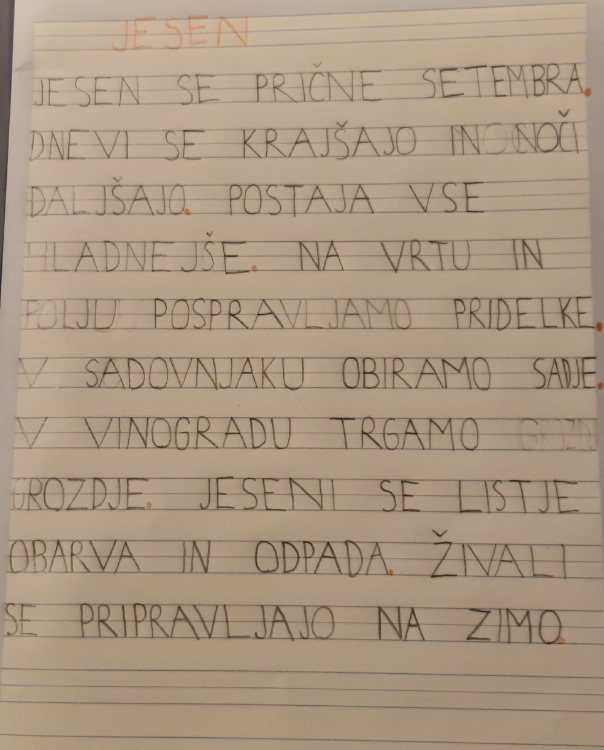 JESEN
JESEN SE PRIČNE SETEMBRA.
DNEVI SE KRAJŠAJO IN NOČI
DALJŠAJO. POSTAJA VSE
HLADNEJŠE. NA VRTU IN
POLJU POSPRAVLJAMO PRIDELKE.
V SADOVNJAKU OBIRAMO SADJE.
V VINOGRADU TRGAMO
GROZDJE. JESENI SE LISTJE
OBARVA IN ODPADA. ŽIVALI
SE PRIPRAVLJAJO NA ZIMO.